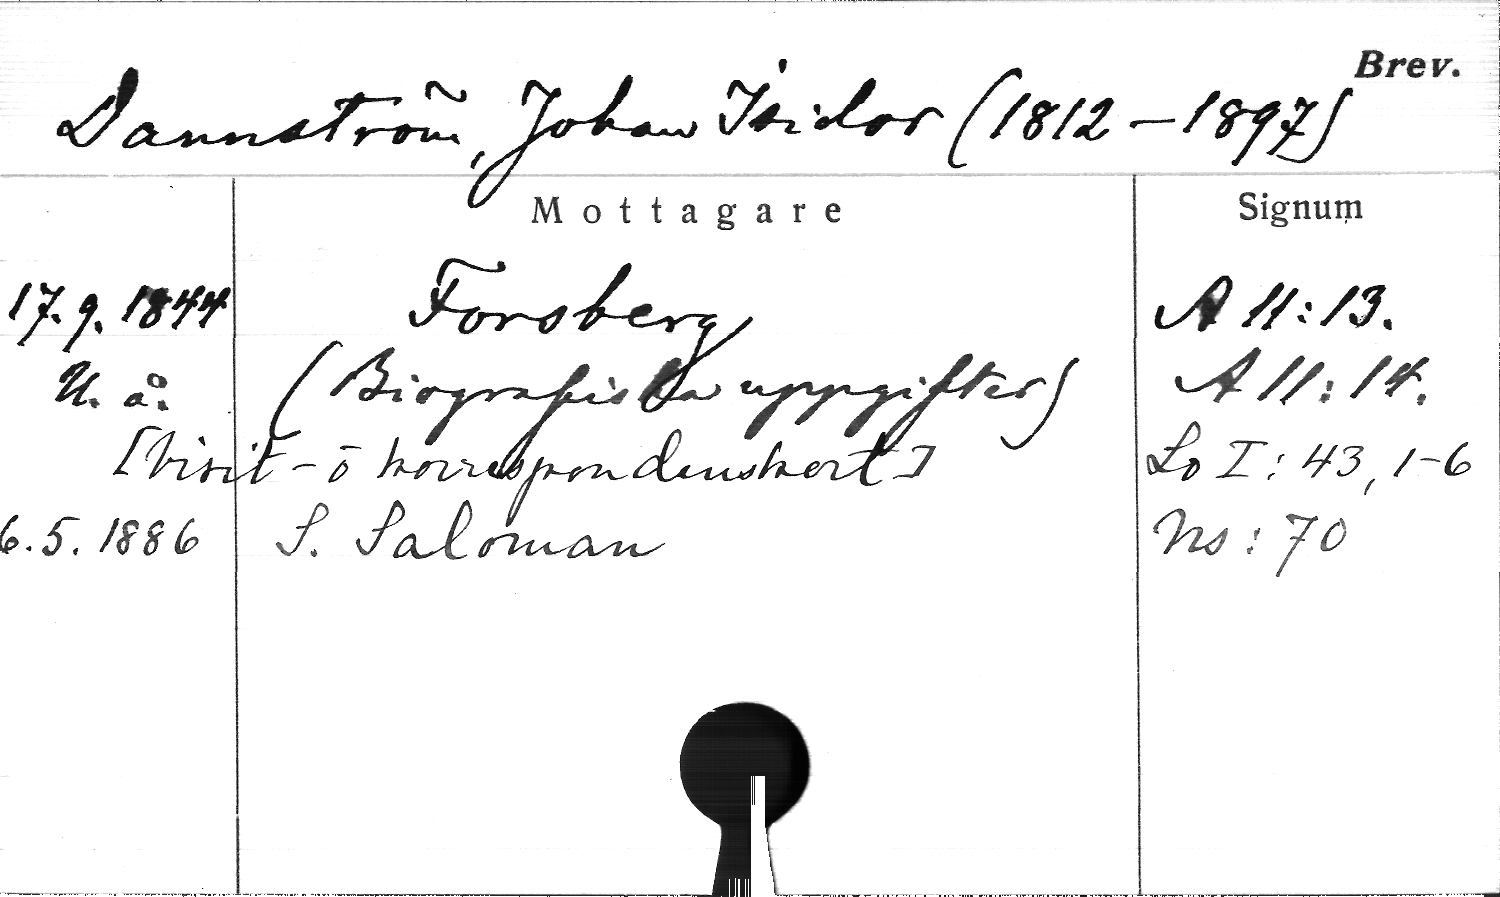 Brev.
Dannström, Johan Isidor (1812–1897)
Mottagare Signum
17.9.1844 Forsberg A 11:13.
U. å. (Biografiska uppgifter) A 11:14.
[Visit- o korrespondenskort] Lo I: 43, 1-6
6.5.1886 S. Saloman Ns: 70